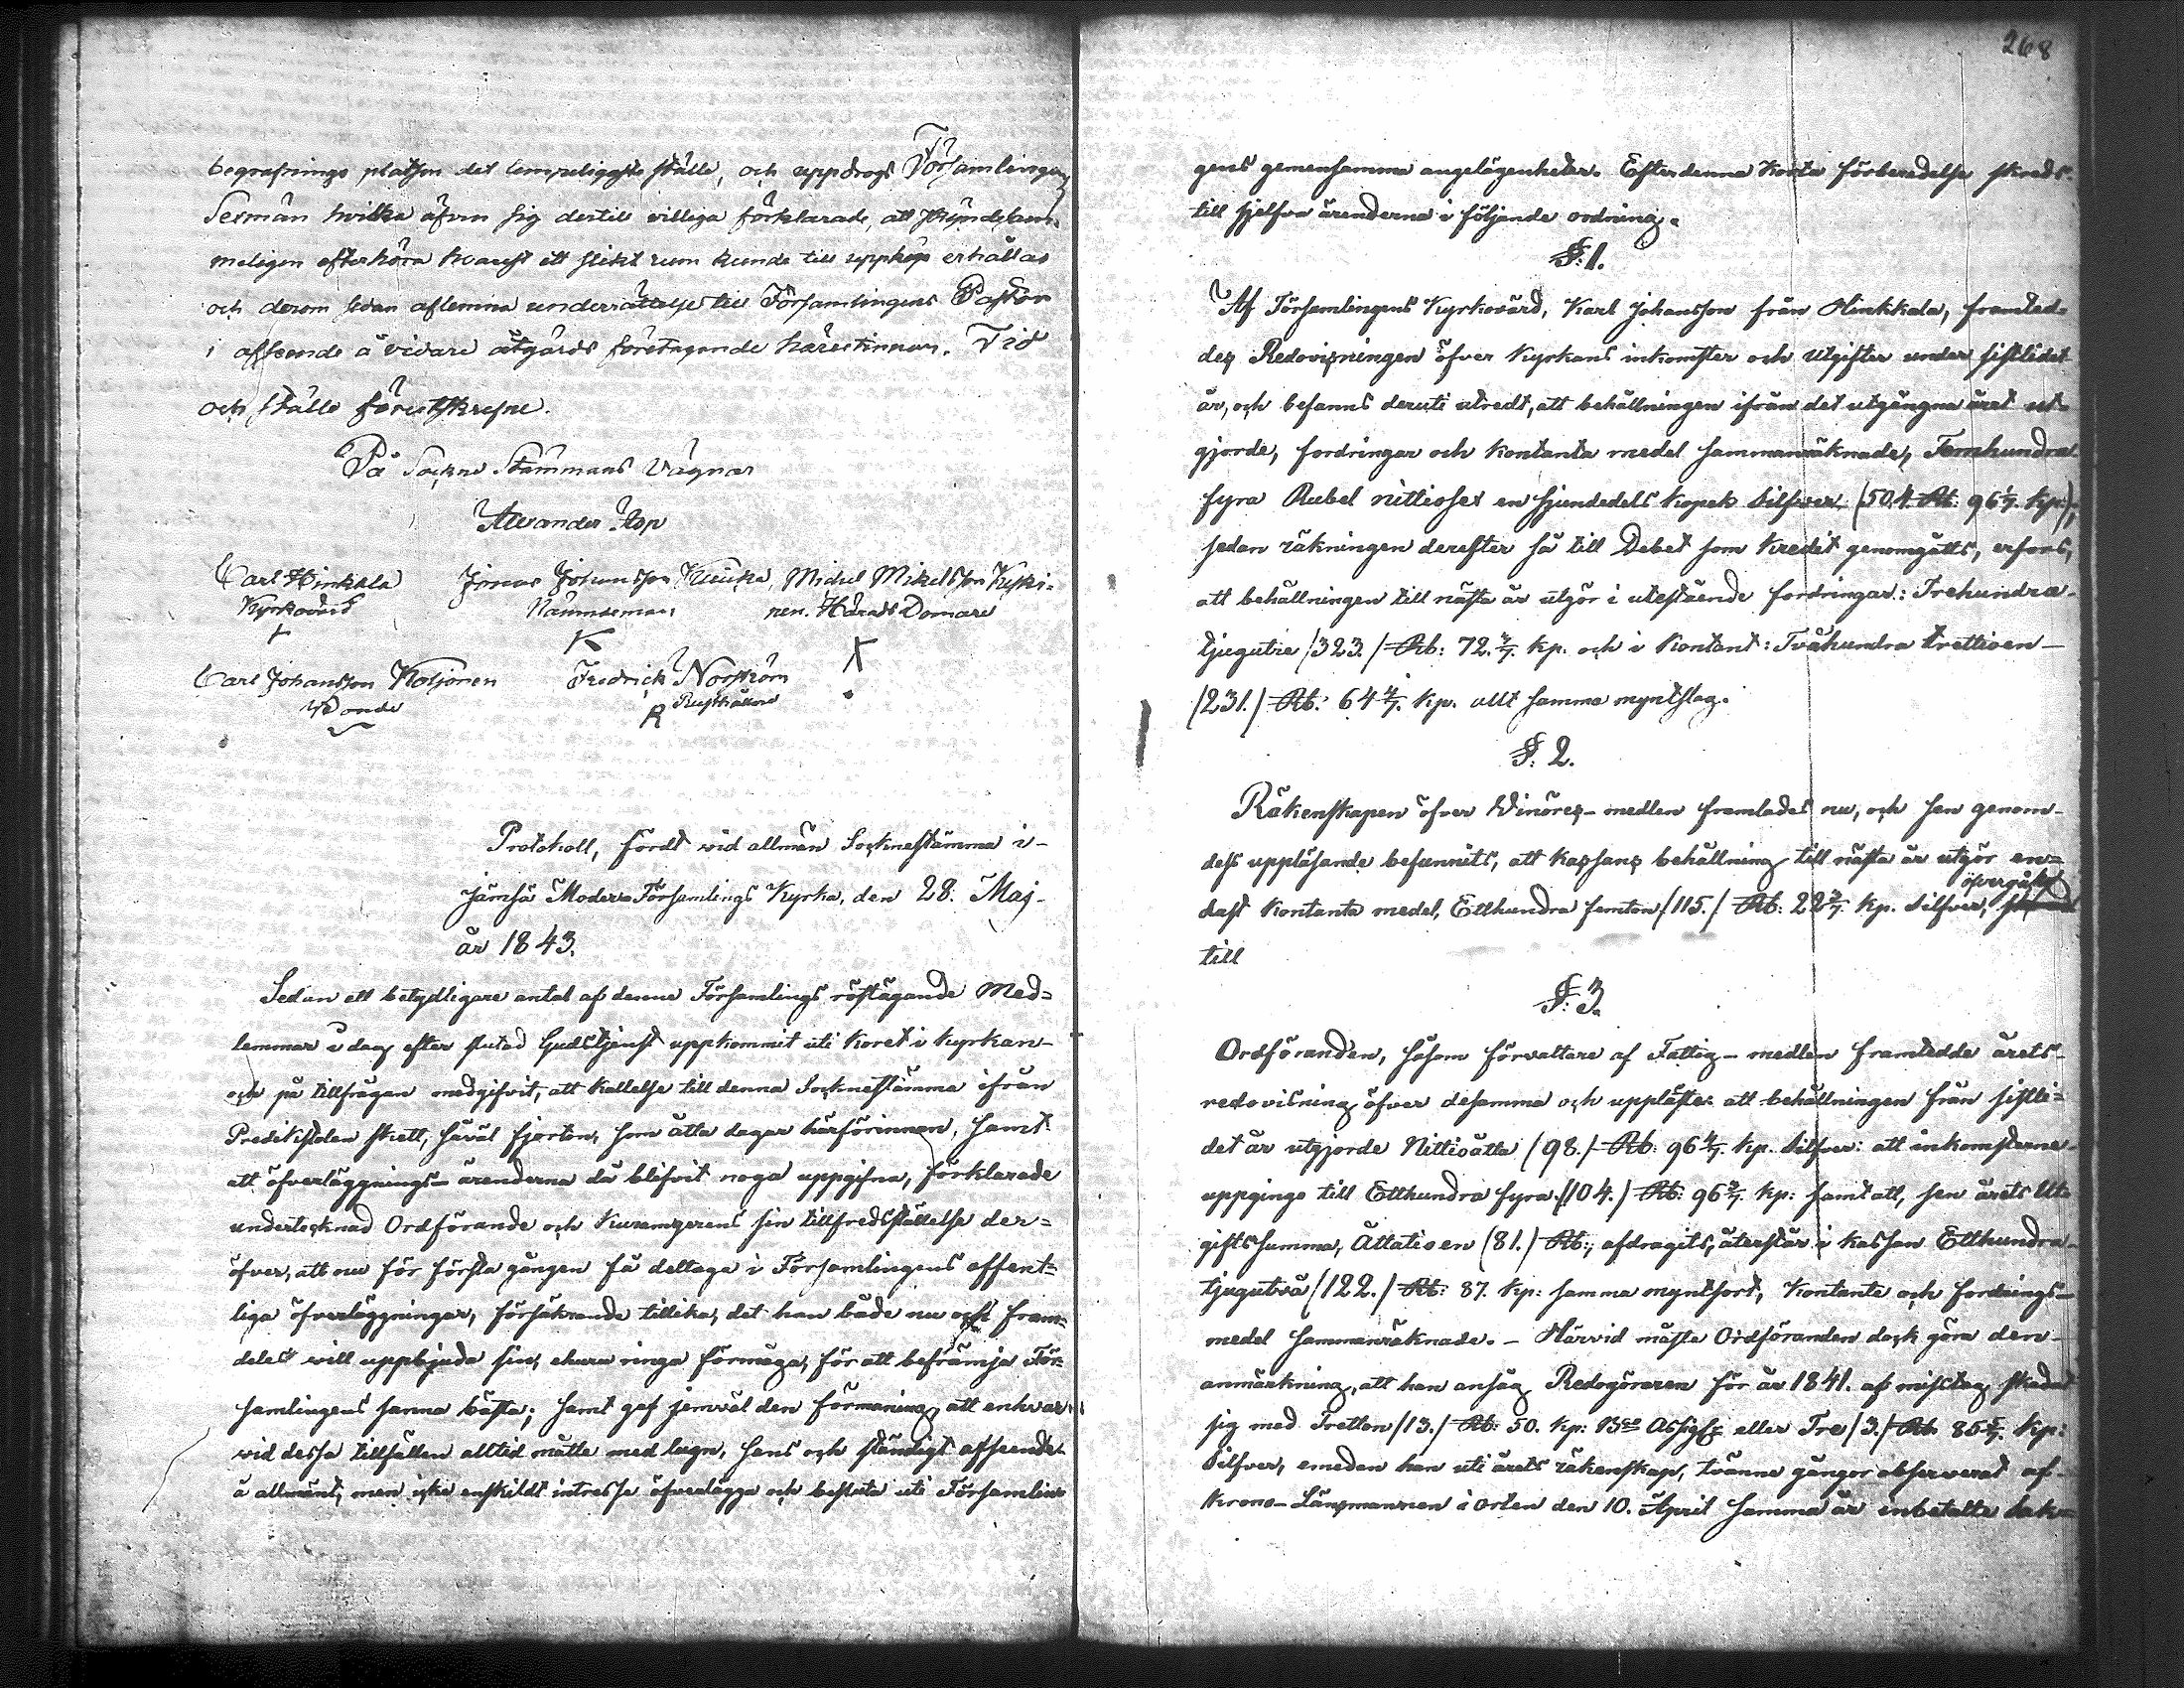 begrafnings platsen det lempeligaste ställe, och uppdrogs Församlingens
Sexmän hvilka äfven sig dertill villiga förklarade, att skyndesam-
meligen efterhöra hvarest ett slikt rum kunde till uppköp erhållas
och derom sedan aflemna underrättelse till Församlingens Pastor
i afseende å vidare åtgärds företagende härestinnan. Tid
och ställe förutskrefne.
På Sockne Stämmans vägnar
Alexander Asp
Carl Hinkkala Jonas Johansson Kuuka, Michel Mikelsson Kyski-
Kyrkovärd Nämndeman nen. Härads Domare
Carl Johansson Kotjonen Fredrich Norström
Bonde Rusthållare
R
Protokoll, fördt vid allmän Socknestämma i
Jämsä Moder-Församlings Kyrka, den 28. Maj
år 1843.
Sedan ett betydligare antal af denna Församlings röstägande Med=
lemmar i dag efter slutad Gudstjenst uppkommit uti Koret i Kyrkan
och på tillfrågan medgifvit, att kallelse till denna Socknestämma ifrån
Predikstolen skett, såväl fjorton, som åtta dagar härförinnan, samt
att öfverläggnings-ärenderna då blifvit noga uppgifna, förklarade
undertecknad Ordförande och sin tillfredsställelse der=
öfver, att nu för första gången få deltaga i Församlingens offent=
liga öfverläggningar, försäkrande tillika, det han både nu och fram=
deles vill uppbjuda sin, ehuru ringa förmåga, för att befrämja För-
samlingens sanna bästa; samt gaf jemväl den förmaning, att enhvar
vid dessa tillfällen alltid måtte med lugn, sans och ständigt afseende
å allmänt, men icke enskildt intresse öfverlägga och besluta uti Församlin-
268
gens gemensamma angelägenheter. Efter denna korta förberedelse skreds
till sjelfva ärenderna i följande ordning.
§. 1.
Af Församlingens Kyrkovärd, Karl Johansson från Hinkkala, framted-
des Redovisningen öfver Kyrkans inkomster och utgifter under sistlidet
år, och befanns deruti utredt, att behållningen ifrån det utgångna året ut-
gjorde, fordringar och kontanta medel sammanräknade, Femhundra
fyra Rubel nittiosex en sjundedels kopek Silfver. (504. Rb: 96 1/7. kp);
sedan räkningen derefter så till Debet som Kredit genomgåtts, erfors,
att behållningen till nästa år utgör i utestående fordringar: Trehundra-
tjugutre /323./ Rb: 72. 4/7. kp. och i kontant: Tvåhundra trettioen
/231./ Rb: 64 4/7. kp. allt samma myntslag.
§. 2.
Räkenskapen öfver Vinöres-medlen framlades nu, och sen genom
dess uppläsande befunnits, att kassans behållning till nästa år utgör en=
dast kontanta medel, Etthundra femton /115./ Rb: 22 3/7. kp. Silfver, öfvergicks
till
§. 3.
Ordföranden, såsom förvaltare af Fattig-medlen framtedde årets
redovisning öfver desamma och upplästes att behållningen från sistli=
det år utgjorde Nittioåtta /98./ Rb: 96 4/7. kp. Silfver: att inkomsterne
uppginge till Etthundra fyra /104./ Rb: 96 3/7. kp: samt att, sen årets Ut-
giftssumma, Åttatioen (81.) Rb:, afdragits, återstår i kassan Etthundra
tjugutvå /122./ Rb: 87. kp: samma myntsort, kontante och fordrings-
medel sammanräknade. – Härvid måste Ordföranden dock göra den
anmärkning, att han ansåg Redogöraren för år 1841. af misstag skadat
sig med Tretton /13./ Rb: 50. kp: Bco Assign: eller Tre /3./ Rb 85 5/7. kp:
Silfver, emedan han uti årets räkenskap, tvänne gånger observerat af
Krono-Länsmannen i orten den 10. April samma år inbetalte sak-